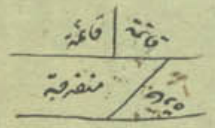 قائمة قائمة
منفرجة